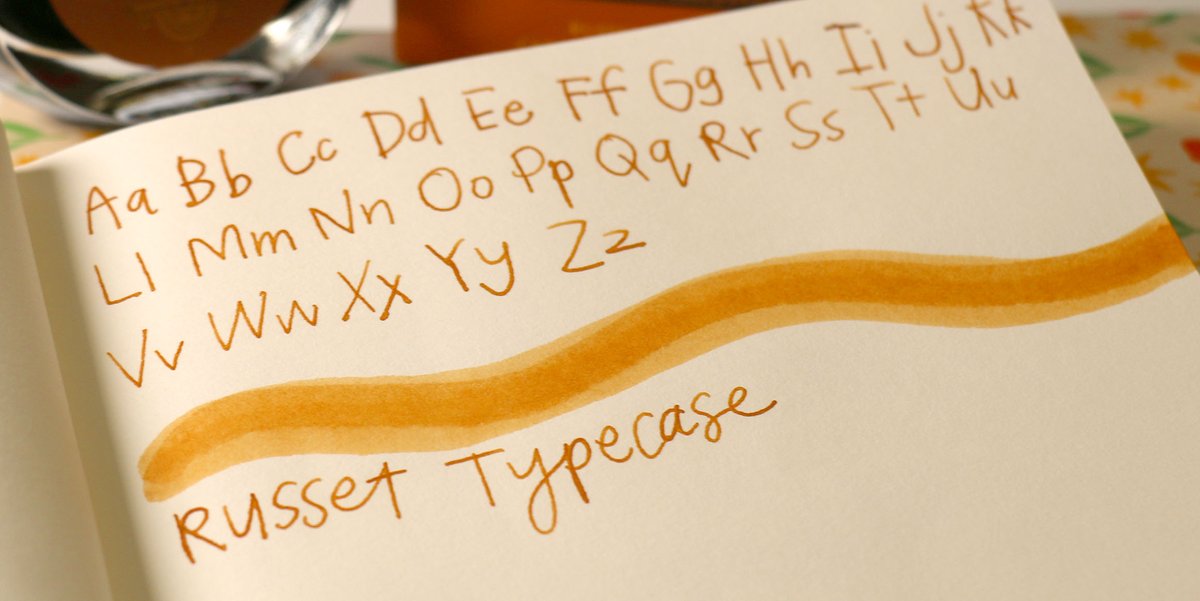 Aa Bb Cc Dd Ee Ff Gg Hh Ii Jj Kk
Ll Mm Nn Oo Pp Qq Rr Ss Tt Uu
Vv Ww Xx Yy Zz
Russet Typecase